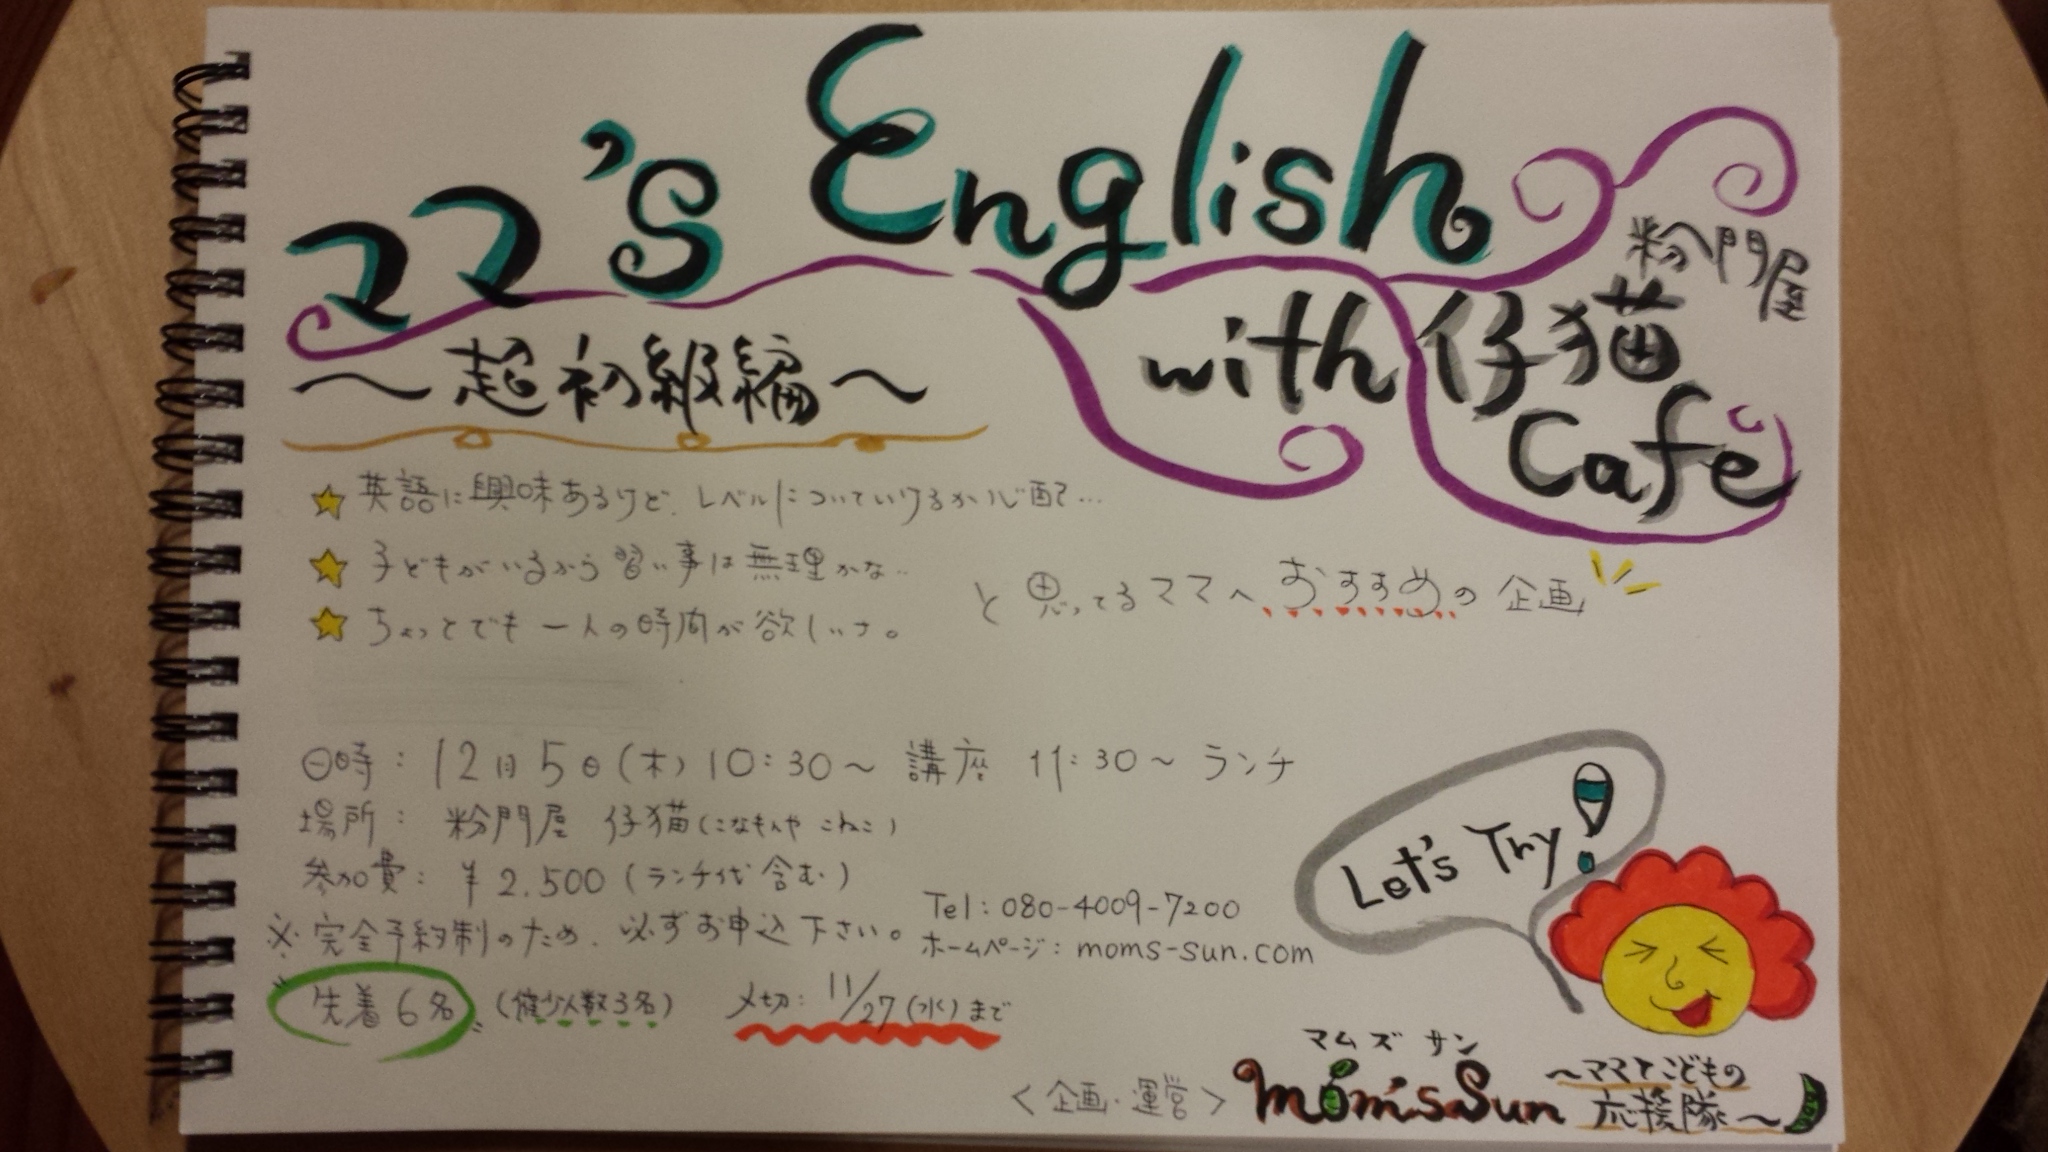 ママ's English
粉門屋
with 仔猫
Cafe
～超初級編～
英語に興味あるけど、レベルについていけるか心配…
子どもがいるから習い事は無理かな…
ちょっとでも一人の時間が欲しいナ。
と思ってるママへおすすめの企画
日時：12月5日(木) 10:30～ 講座 11:30～ ランチ
場所：粉門屋 仔猫(こなもんや こねこ)
参加費：¥2.500(ランチ代含む)
※完全予約制のため、必ずお申込下さい。
Tel：080-4009-7200
ホームページ：moms-sun.com
先着6名 (催少人数3名) 〆切：11/27(水)まで
Let's Try!
マムズ サン
<企画・運営> mom'sSun ～ママとこどもの
応援隊～